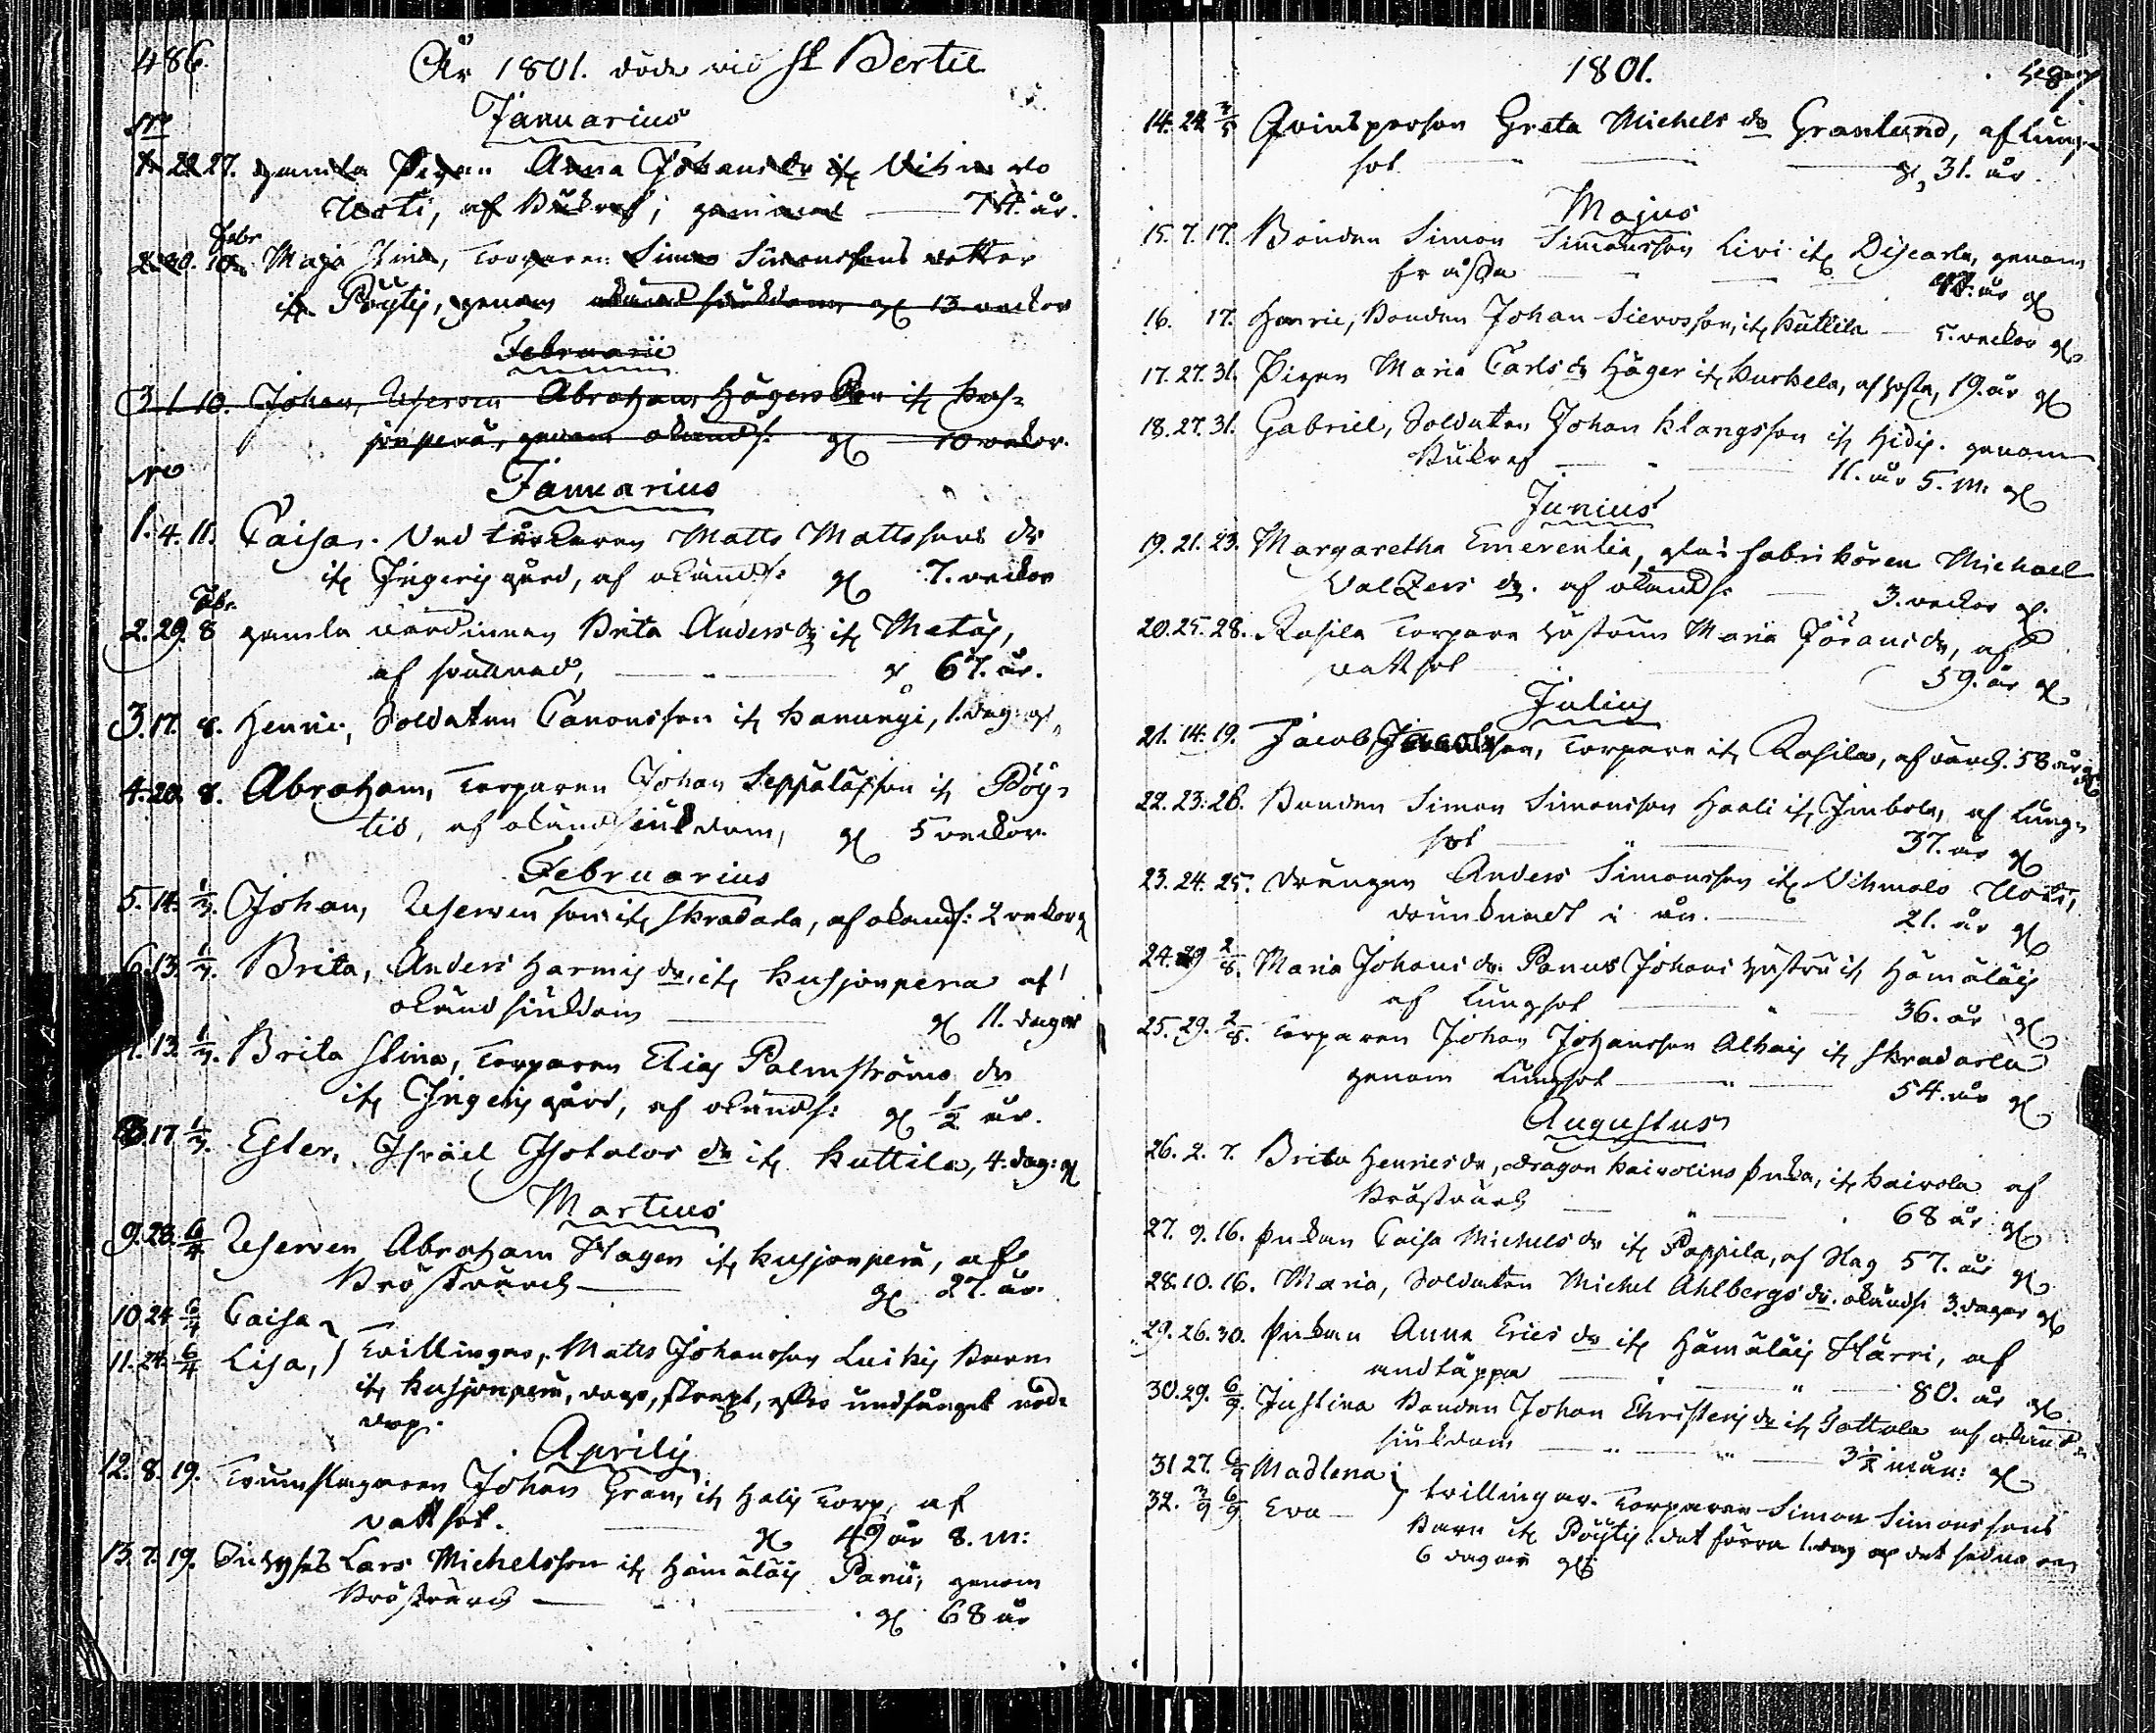 486.
År 1801. döde vid St Bertil
Januarius
No
1. 22 27. gamla Pigan Anna Johans dr if Vihmalo
Uoti, af Bukref, gammal 74. år.
Febr
2. 30. 10. Maja Stina, Torparen Simo Simonsons dotter
if Pöytis, genom okänd siukdom gl 13 veckor
Februarii
3. 1. 10. Johan, Reserven Abraham Hagers Son if Kus=
jonperä, genom okänd s: gl 10 vekor.
No
Januarius
1. 4. 11. Caisa. Matts Mattssons dr
if Ingeris gård, af okänd s: gl 7. veckor
Febr.
2. 29. 8 gamla värdinnan Brita Anders dr if Metäs,
af 67. år.
3. 17. 8. Henric, Soldaten Canonsson if Kanungi, 1. dag: gl
4. 20. 8. Abraham, Torparen Johan Seppäläs son if Pöy=
tis, af okänd siukdom, gl 5 veckor.
Februarius
5. 14. 1/3. Johan, Reserven son if Skradarla, af okänd s: 2 vekor gl
6. 13. 1/3. Brita, Anders Harmis dr. if Kusjonperä af
okänd siukdom gl 11. dagar
7. 13. 1/3. Brita Stina, Torparen Elias Palmströms dr
if Ingeris gård, af okänd s: gl 1/2 år.
8. 17 1/3. Ester, Israël Isotalos dr if Kuttila, 4. dag: gl
Martius
9. 23. 6/4 Reserven Abraham Hager if Kusjonperä, af
Bröstvärck gl 27. år.
10 24 6/4 Caisa
11. 24. 6/4 Lisa, Tvillingar, Matts Johansson Luikis Barn
if Kusjonperä, strax, efter undfånget nöd=
dop.
Aprilis
12. 8. 19. Trumslagaren Johan Gran, if Halis Torp, af
vattsot. gl 49 år 8. m:
13. 7. 19. Lars Michelsson if Hämäläis Panu, genom
Bröstvärck gl 68 år
1801. 487
14. 24 3/5 Qvinsperson Greta Michels dr Granlund, af lung=
sot gl, 31. år.
Majus
15. 7. 17. Bonden Simon Simonsson Livi if Discarla, genom
bråssa år gl
16. 17. Henric, Bonden Johan Sierossons, if Kuttila 5. veckor gl
17. 27. 31. Pigan Maria Carls dr Häger if Kurkela, af hosta, 19. år gl
18. 27. 31. Gabriel, Soldaten Johan Klangs son if Hidis. genom
Bukref 11. år 5. m: gl
Junius
19. 21. 23. Margaretha Emerentia, glas fabrikören Michael
Walzers dr. af okänd s: 3. veckor gl.
20. 25. 28. Rosila Torpare hustrun Maria Jörans dr, af
vattsot 59. år gl
Julius
21. 14. 19. Jacob Jacobsson, Torpare if Rosila, af värck. 58 år gl
22. 23. 26. Bonden Simon Simonsson Haali if Jimbola, af Lung=
sot 37. år gl
23. 24. 25. Drängen Anders Simonsson if Vihmalo Uoti,
drunknadt i ån. 21. år gl
24. 29 2/8. Maria Johans dr. Panus Johans hustru if Hämäläis
af Lungsot 36. år gl
25. 29. 2/8. Torparen Johan Johansson Alhais if Skradarla
genom Lungsot 54. år gl
Augustus
26. 2. 7. Brita Henrics dr, dragon Kairolins Enka, if Kairola af
Bröstvärck 68 år gl
27. 9. 16. Enkan Caisa Michels dr if Pappila, af Slag 57. år gl
28. 10. 16. Maria, Soldaten Michel Ahlbergs dr. okänd s: 3. dagar gl
29. 26. 30. Enkan Anna Erics dr if Hämäläis Härri, af
andtäppa 80. år gl.
30. 29. 6/9. Justina Bonden Johan Christers dr if Tattala af okänd
siukdom 3 1/2 mån: gl
31 27. 6/9 Madlena
32. 3/9 6/9 Eva tvillingar. Torparen Simon Simonssons
Barn if Pöytis det förra 1. dag det sednare
6 dagar gl